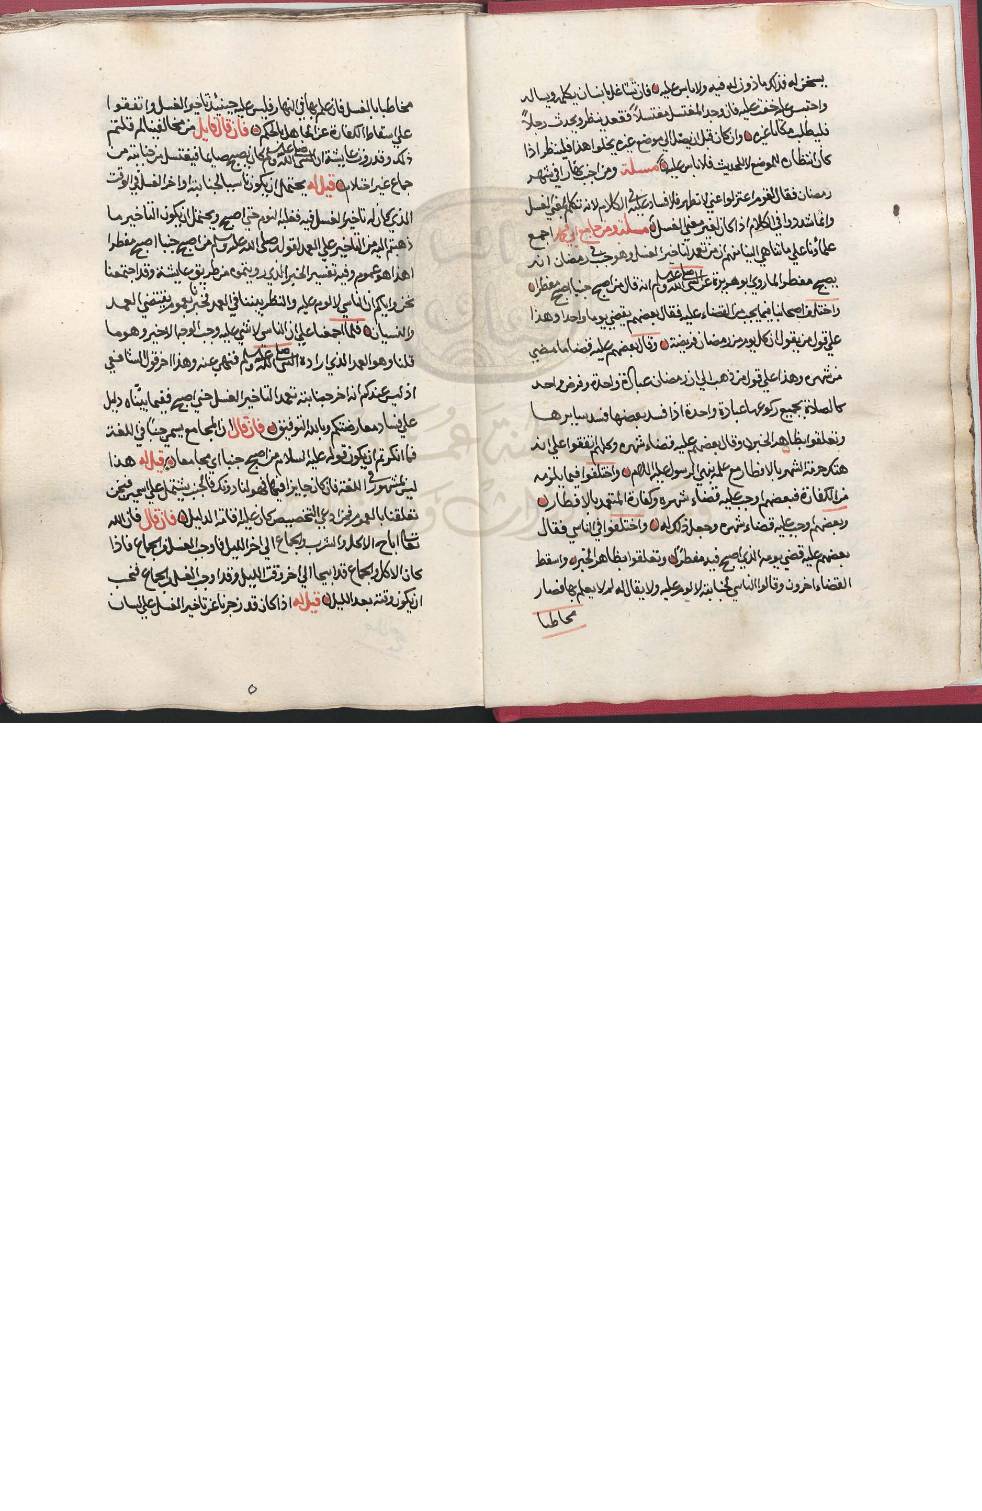 يسخن له فذلك ماذون له فيه ولا باس عليه فان تشاغل بانسان يكلمه ويساله
واحتبس عليه خفت عليه فان وجد المغتسل مغتسلا فقعد ينظر ويحدث رجلا
فليطلب مكانا غيره وان كان قبل ان يصل الى موضع غيره يخلو هذا فلينتظر اذا
كان انتظاره للموضع لا للحديث فلا باس عليه مسئلة ومن اجنب نهارا في شهر
رمضان فقال لقوم اعتزلوا عني لاتطهر فلا فساد عليه في الكلام لانه تكلم لمعنى الغسل
وانما شددوا في الكلام اذا كان لغير معنى الغسل مسئلة ومن جامع ابي محمد اجمع
علماؤنا على ما تناهى الينا منهم ان من تعمد لتاخير الغسل وهو جنب في رمضان انه
يصبح مفطرا لما روى ابو هريرة عن النبي صلى الله عليه وسلم انه قال من اصبح جنبا اصبح مفطرا
واختلف اصحابنا فيما يجب من القضاء عليه فقال بعضهم يقضي يوما واحدا وهذا
على قول من يقول ان كل يوم من رمضان فريضة وقال بعضهم عليه قضاء ما مضى
من شهره وهذا على قول من ذهب الى ان رمضان عبادة واحدة وفرض واحد
كالصلاة بجميع ركوعها عبادة واحدة اذا فسد بعضها فسد سايرها
وتعلقوا بظاهر الخبر وقال بعضهم عليه قضاء شهره وكلهم اتفقوا على انه
هتك حرمة الشهر بالافطار مع علمه بنهي الرسول عليه السلام واختلفوا فيما يلزمه
من الكفارة فبعضهم اوجب عليه قضاء شهره وكفارة المتعمد بالافطار
وبعضهم اوجب عليه قضاء شهره وجعل ذلك له واختلفوا في الناسي فقال
بعضهم عليه قضى يومه الذي اصبح فيه مفطرا وتعلقوا بظاهر الخبر واسقط
القضاء اخرون وقالوا الناسي لجنابته لا لوم عليه ولا يقال له لم لا يعلم بها فصار
مخاطبا
مخاطبا بالغسل فان علم بها في النهار فليس عليه حينئذ تاخير الغسل واتفقوا
على اسقاط الكفارة عن الجاهل بالحكم فان قال قايل من مخالفينا لم قلتم
ذلك وقد روت عايشة ان النبي صلى الله عليه وسلم كان يصبح صايما فيغتسل من جنابته من
جماع غير احتلام قيل له يحتمل ان يكون ناسيا لجنابته او اخر الغسل في الوقت
الذي كان له تاخير الغسل فيه فغلبه النوم حتى اصبح ويحتمل ان يكون التاخير ما
ذهبتم اليه من التاخير على العمد لقوله صلى الله عليه وسلم من اصبح جنبا اصبح مفطرا
اهذا هو عموم وفيه تفسير الخبر الذي رويتموه من طريق عايشة وقد اجتمعنا
نحن واياكم ان الناسي لا لوم عليه والنظر بيننا في العمد لخبر بعموم يقتضي العمد
والنسيان فلما اجمعنا على ان الناسي لا شي عليه وجب الوجه الاخر وهو ما
قلنا وهو العمد الذي اراده النبي صلى الله عليه وسلم فنهى عنه وهذا اخر قول الشافعي
اذ ليس عندكم اذا خرجنا بنه تعمدا لتاخير الغسل حتى اصبح ففيما بيناه دليل
على فساد معارضتكم وبالله التوفيق فان قال ان المجامع يسمى جنبا في اللغة
فما انكرتم ان يكون قوله عليه السلام من اصبح جنبا اي مجامعا قيل له هذا
ليس بمشهور في اللغة فان كان جايزا فيها فهو لنا دونك لان الجنب يشتمل على اسمين فنحن
تعلقنا بالعموم ومن ادعى التخصيص كان عليه اقامة الدليل فان قال فان الله
تعالى اباح الاكل والشرب والجماع الى اخر الليل فاوجب الغسل والجماع فاذا
كان الاكل والجماع قد ابيحا الى اخر وقت الليل وقد اوجب الغسل والجماع فيجب
ان يكون وقته بعد الليل قيل له اذا كان قد زجرنا عن تاخير الغسل على لسان